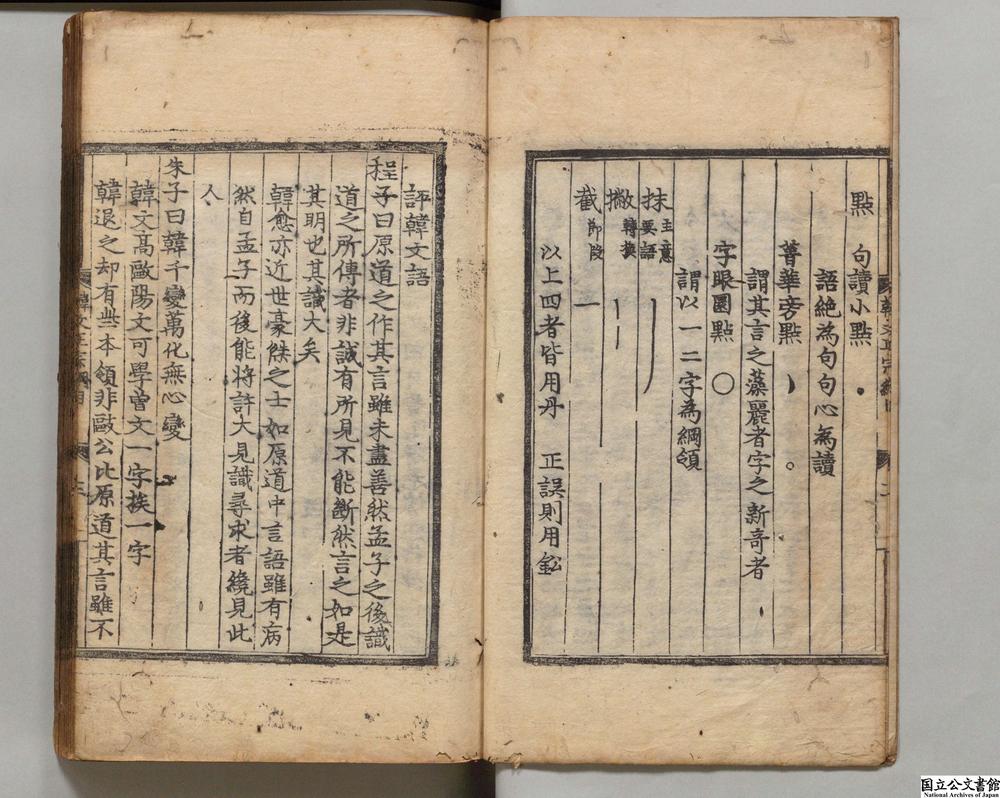 點 句讀小點
語絶為句句心為讀
菁華旁點
謂其言之藻麗者字之新奇者
字眼圈點 ○
謂以一二字為綱領
抹 主意 要語
撇 轉換
截 節段
以上四者皆用丹 正誤則用鈆
評韓文語
程子曰原道之作其言雖未盡善然孟子之後識
道之所傳者非誠有所見不能斷然言之如是
其明也其識大矣
韓愈亦近世豪傑之士如原道中言語雖有病
然自孟子而後能将許大見識尋求者纔見此
人
朱子曰韓千變萬化無心變
韓文高歐陽文可學曾文一字挨一字
韓退之却有些本領非歐公比原道其言雖不
国立公文書館
National Archives of Japan